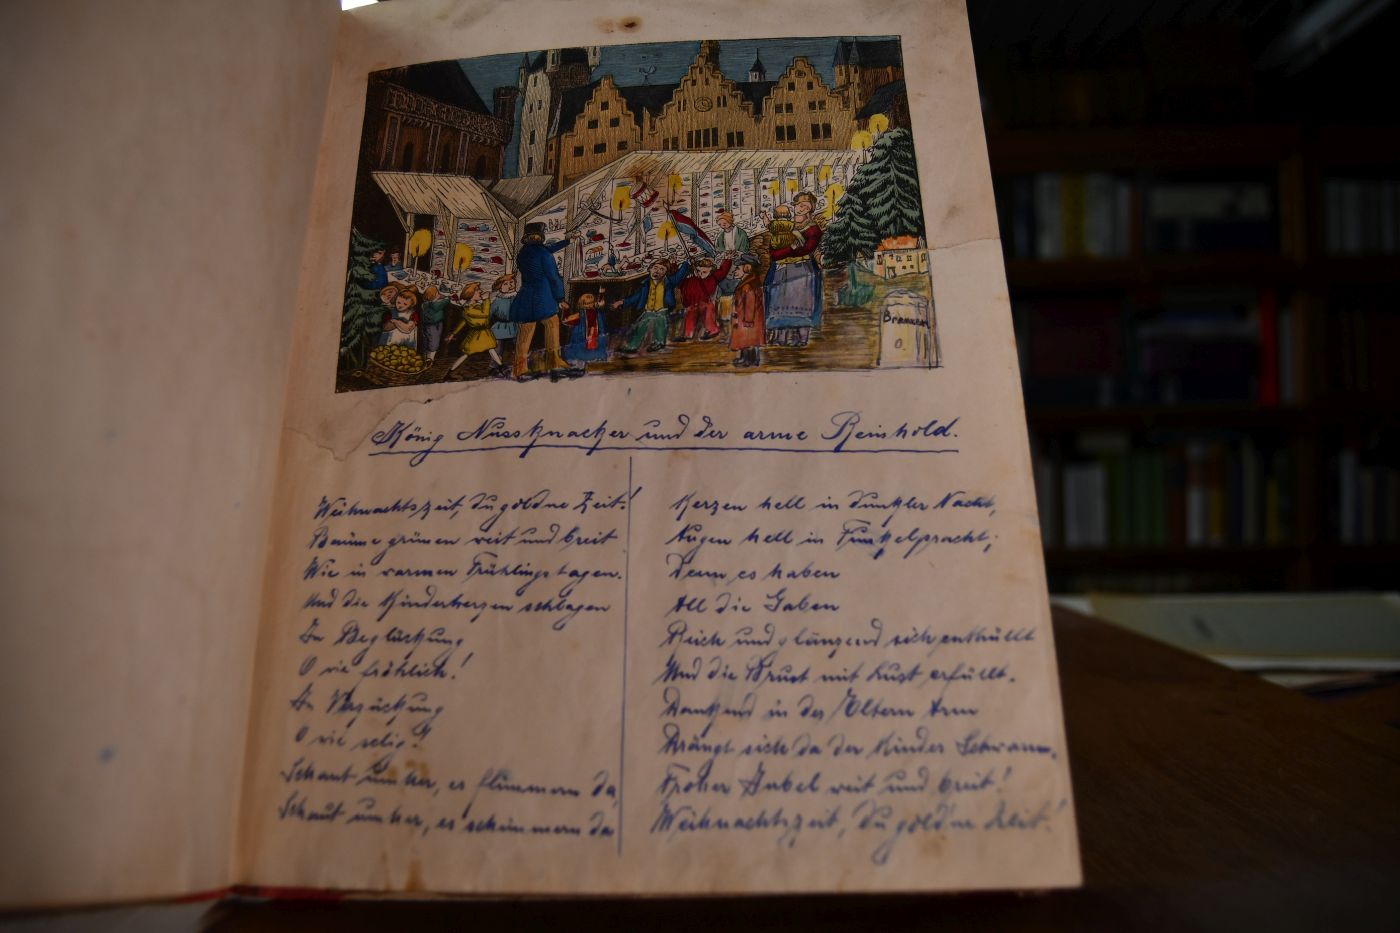 Brennerei
König Nussknacker und der arme Reinhold.
Weihnachtszeit, du goldne Zeit!
Bäume grünen weit und breit
Wie in warmen Frühlingstagen.
Und die Kinderherzen schlagen
In Beglückung
O wie fröhlich!
In Verzückung
O wie selig!
Schaut umher, es flimmern da,
Schaut umher, es schimmern da
Kerzen hell in dunkler Nacht,
Augen hell in Funkelpracht;
Denn es haben
All die Gaben
Reich und glänzend sich enthüllt
Und die Brust mit Lust erfüllt.
Dankend in der Eltern Arm
Drängt sich da der Kinder Schwarm.
Froher Jubel weit und breit!
Weihnachtszeit, du goldne Zeit!